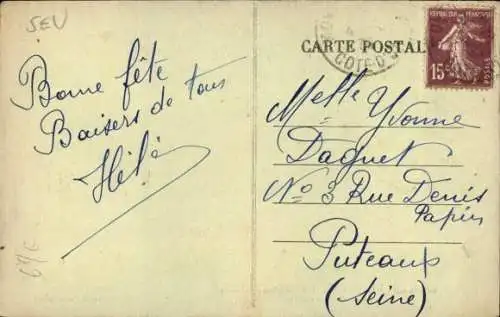 SEV
Bonne fête
Baisers de tous
CARTE POSTALE
COTE-D
REPUBLIQUE FRANÇAISE
15
POSTES
Melle Yvonne
Daguet
No 3 Rue Denis
Papin
Puteaux
(Seine)